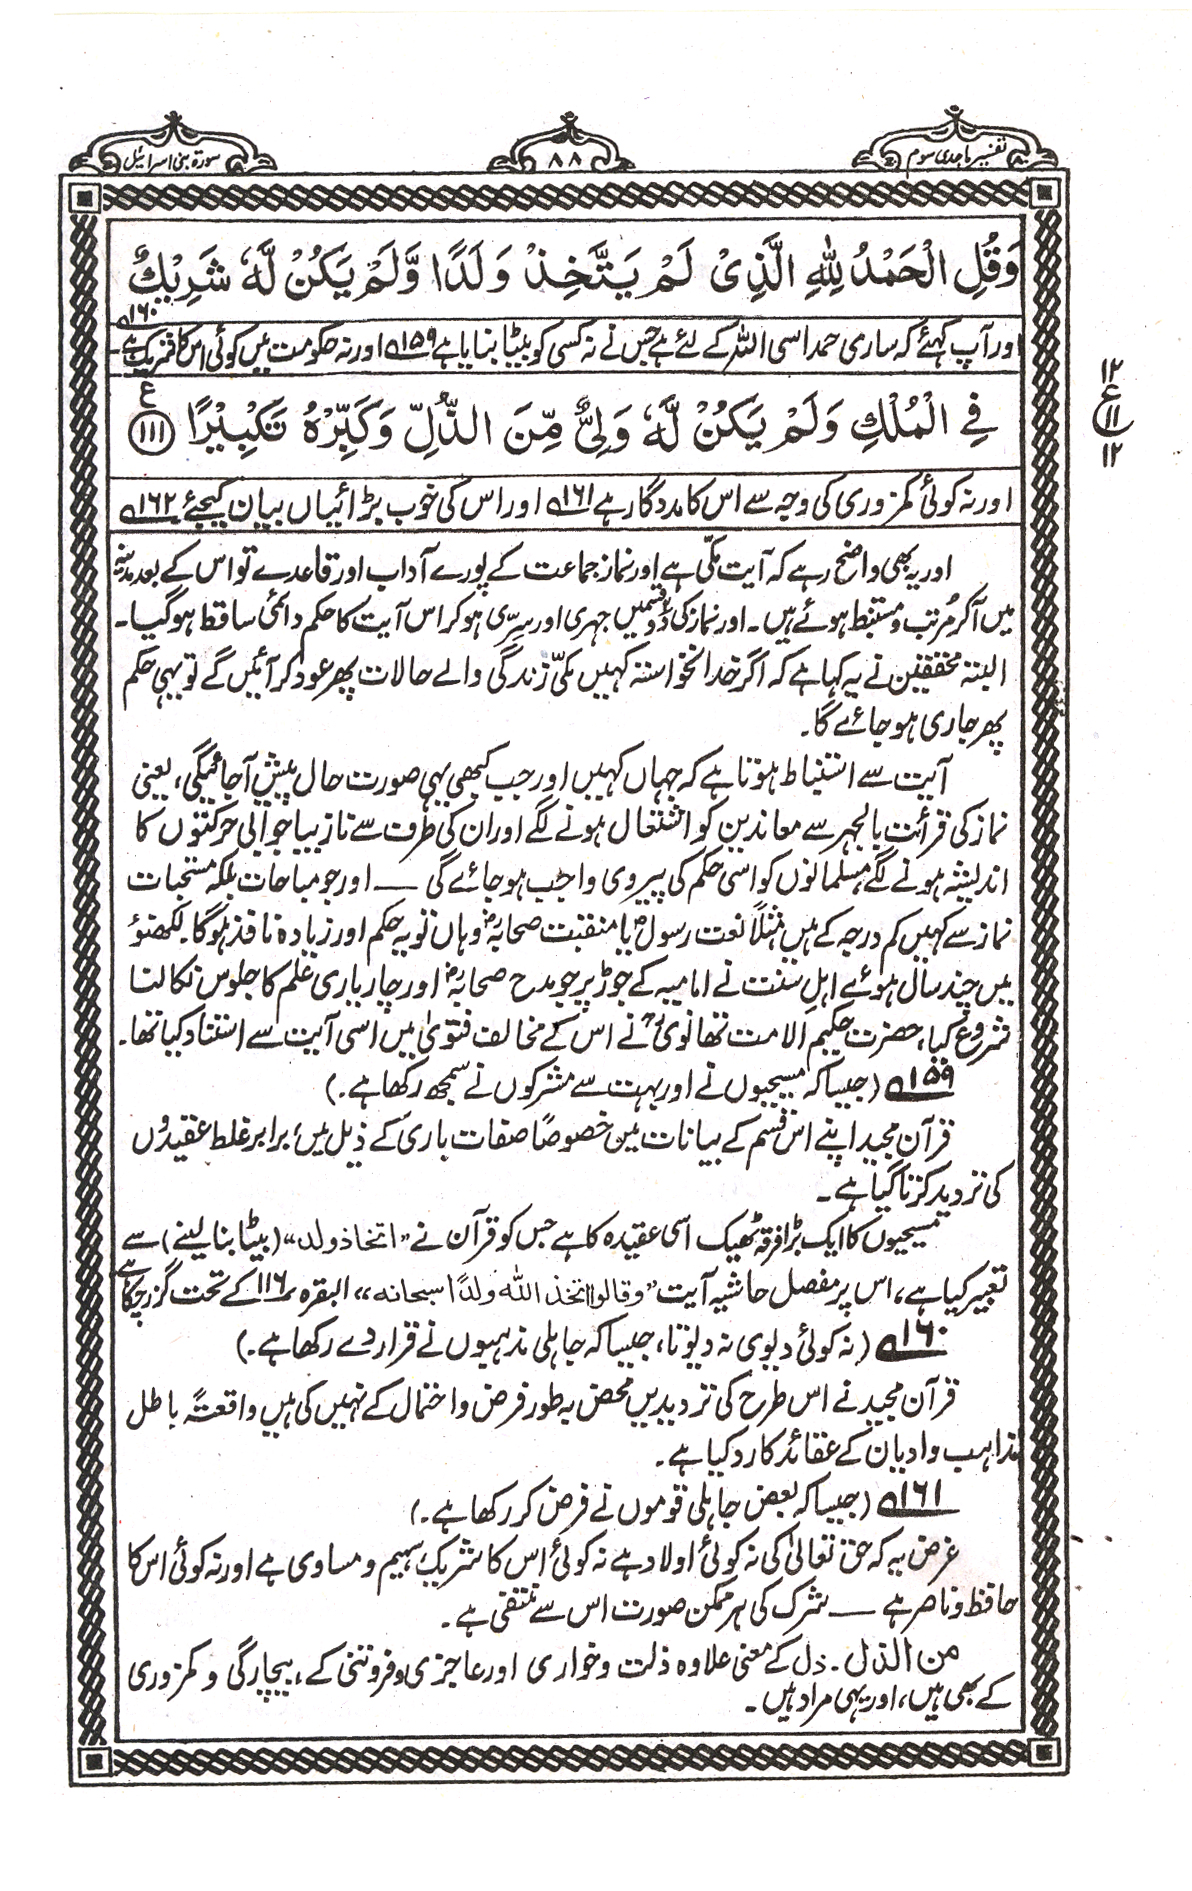 تفسیر ماجدی سوم
۸۸
سورۃ بنی اسرائیل
وَقُلِ الْحَمْدُ لِلّٰهِ الَّذِیْ لَمْ یَتَّخِذْ وَلَدًا وَّلَمْ یَكُنْ لَّهٗ شَرِیْكٌ
اور آپ کہئے کہ ساری حمد اسی اللہ کے لئے ہے جس نے نہ کسی کو بیٹا بنایا ہے ۱۵۹ اور نہ حکومت میں کوئی اس کا شریک ہے ۱۶۰
فِی الْمُلْكِ وَلَمْ یَكُنْ لَّهٗ وَلِیٌّ مِّنَ الذُّلِّ وَكَبِّرْهُ تَكْبِیْرًا ۱۱۱ ع
۱۲
ع
۱۱
۱۲
اور نہ کوئی کمزوری کی وجہ سے اس کا مددگار ہے ۱۶۱ اور اس کی خوب بڑائیاں بیان کیجئے ۱۶۲
اور یہ بھی واضح رہے کہ آیت مکّی ہے اور نماز جماعت کے پورے آداب اور قاعدے تو اس کے بعد مدینہ
میں آکر مُرتب و مستنبط ہوئے ہیں۔ اور نماز کی دو قسمیں جہری اور سرّی ہوکر اس آیت کا حکم دائمی ساقط ہوگیا۔
البتہ محققین نے یہ کہا ہے کہ اگر خدانخواستہ کہیں مکّی زندگی والے حالات پھر عود کر آئیں گے تو یہی حکم
پھر جاری ہوجائے گا۔
آیت سے استنباط ہوتا ہے کہ جہاں کہیں اور جب کبھی یہی صورت حال پیش آجائیگی، یعنی
نماز کی قرأت بالجہر سے معاندین کو اشتعال ہونے لگے اور ان کی طرف سے نازیبا جوابی حرکتوں کا
اندیشہ ہونے لگے، مسلمانوں کو اسی حکم کی پیروی واجب ہوجائے گی — اور جو مباحات بلکہ مستحبات
نماز سے کہیں کم درجہ کے ہیں مثلاً نعت رسولؐ یا منقبت صحابہؓ وہاں تو یہ حکم اور زیادہ نافذ ہوگا۔ لکھنؤ
میں چند سال ہوئے اہلِ سنت نے امامیہ کے جوڑ پر جو مدح صحابہؓ اور چار یاری علم کا جلوس نکالنا
شروع کیا، حضرت حکیم الامت تھانویؒ نے اس کے مخالف فتویٰ میں اسی آیت سے استناد کیا تھا۔
۱۵۹ (جیسا کہ مسیحیوں نے اور بہت سے مشرکوں نے سمجھ رکھا ہے۔)
قرآن مجید اپنے اس قسم کے بیانات میں خصوصاً صفات باری کے ذیل میں، برابر غلط عقیدوں
کی تردید کرتا گیا ہے۔
مسیحیوں کا ایک بڑا فرقہ ٹھیک اسی عقیدہ کا ہے جس کو قرآن نے ”اتخاذ ولد“ (بیٹا بنا لینے) سے
تعبیر کیا ہے، اس پر مفصل حاشیہ آیت ”وقالوا اتخذ اللّٰه ولدًا سبحانه“، البقرہ ۱۱۶ کے تحت گزر چکا ہے
۱۶۰ (نہ کوئی دیوی نہ دیوتا، جیسا کہ جاہلی مذہبوں نے قرار دے رکھا ہے۔)
قرآن مجید نے اس طرح کی تردیدیں محض بہ طور فرض و احتمال کے نہیں کی ہیں واقعتہً باطل
مذاہب و ادیان کے عقائد کا رد کیا ہے۔
۱۶۱ (جیسا کہ بعض جاہلی قوموں نے فرض کر رکھا ہے۔)
غرض یہ کہ حق تعالیٰ کی نہ کوئی اولاد ہے نہ کوئی اس کا شریک سہیم و مساوی ہے اور نہ کوئی اس کا
حافظ و ناصر ہے — شرک کی ہر ممکن صورت اس سے منتفی ہے۔
من الذل۔ ذل کے معنی علاوہ ذلت و خواری اور عاجزی و فروتنی کے، بیچارگی و کمزوری
کے بھی ہیں، اور یہی مراد ہیں۔